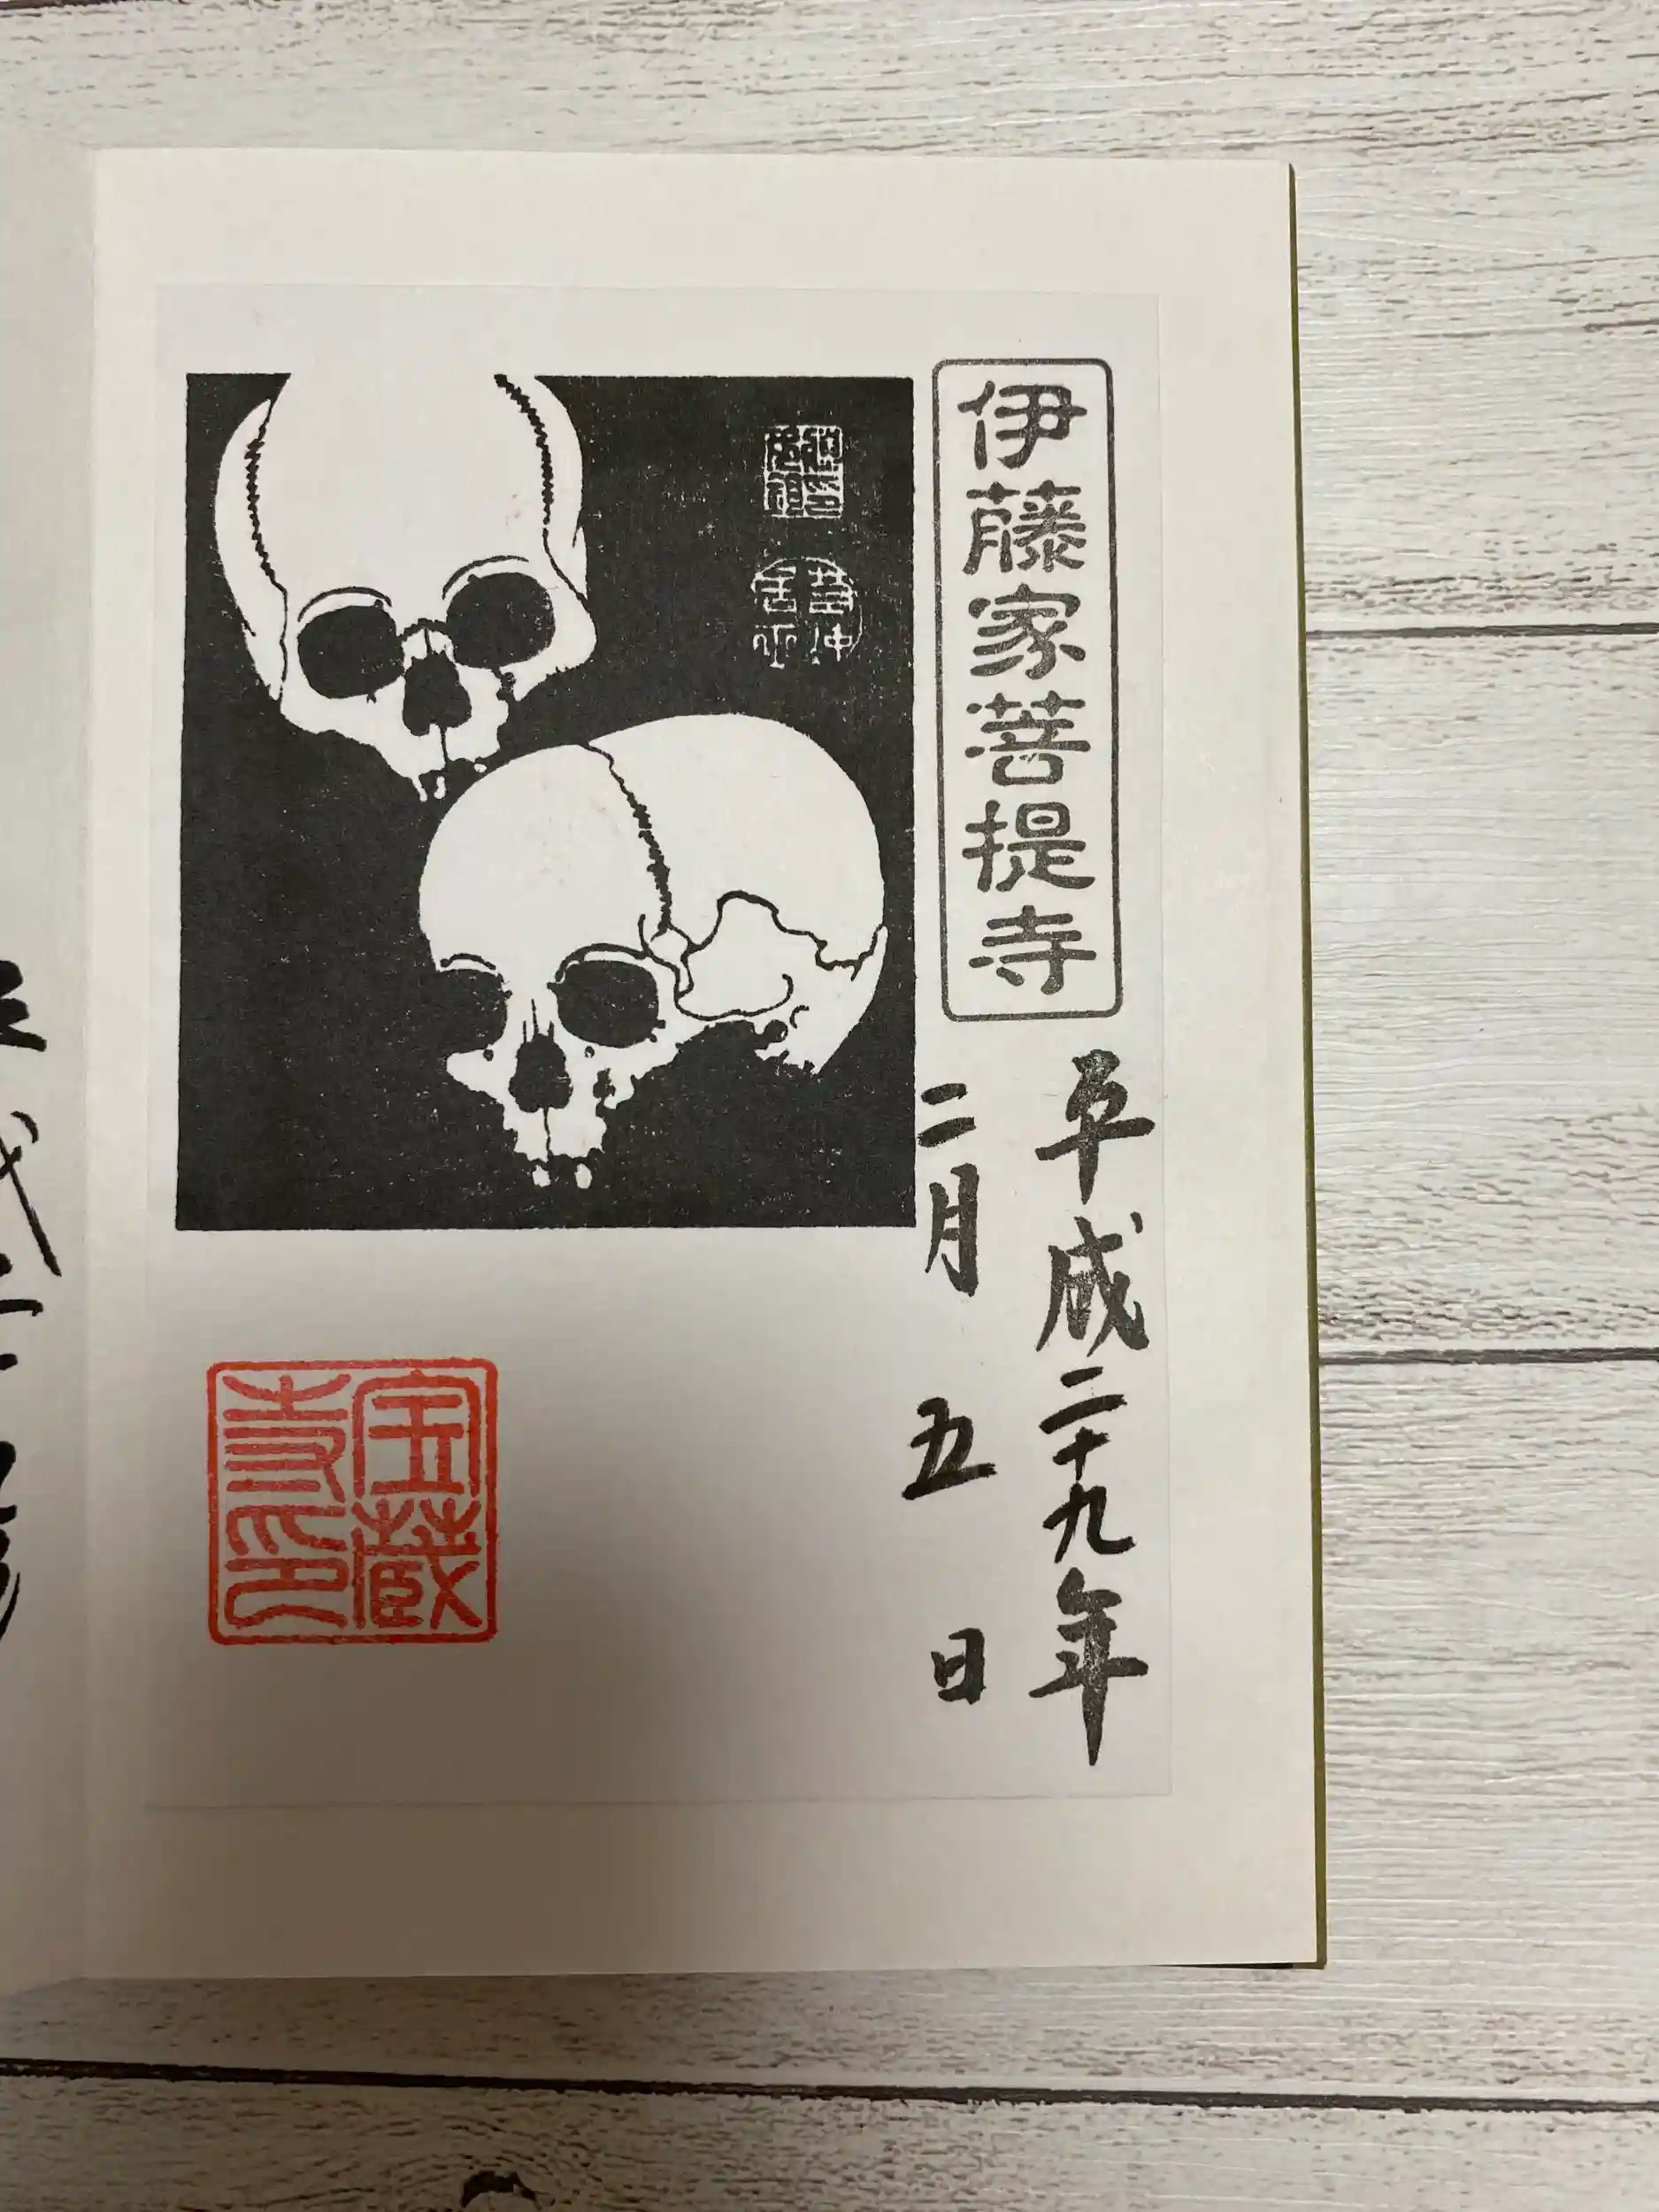 伊藤家菩提寺
平成二十九年
二月五日
若冲
居士
宝蔵
寺印